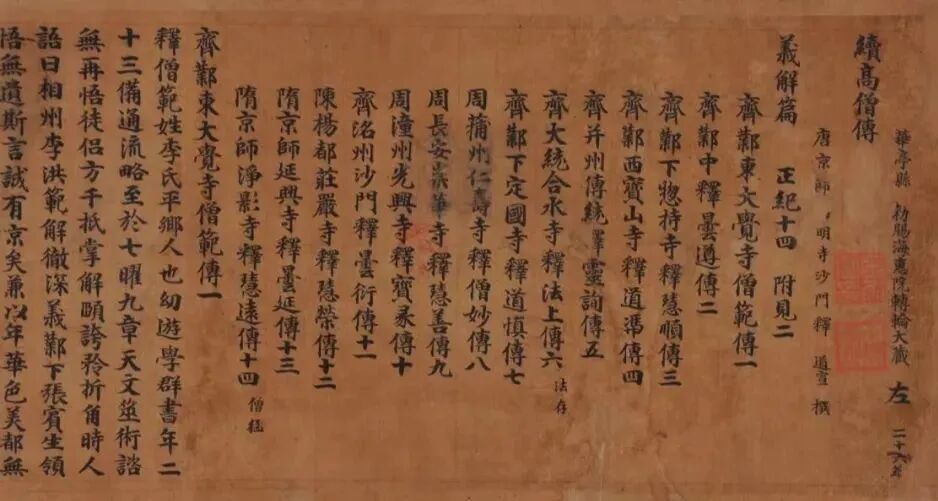 華亭縣 敕賜海惠院轉輪大藏 左
續高僧傳
唐京師 明寺沙門釋 道宣 撰
義解篇 正紀十四 附見二
齊鄴東大覺寺僧範傳一
齊鄴中釋曇遵傳二
齊鄴下惣持寺釋慧順傳三
齊鄴西寶山寺釋道憑傳四
齊并州傳統釋靈詢傳五
齊大統合水寺釋法上傳六 法存
齊鄴下定國寺釋道慎傳七
周蒲州仁壽寺釋僧妙傳八
周長安崇華寺釋慧善傳九
周潼州光興寺釋寶彖傳十
齊洺州沙門釋曇衍傳十一
陳楊都莊嚴寺釋慧榮傳十二
隋京師延興寺釋曇延傳十三
隋京師淨影寺釋慧遠傳十四 僧猛
齊鄴東大覺寺僧範傳一
釋僧範姓李氏平鄉人也幼遊學群書年二
十三備通流略至於七曜九章天文筮術諮
無再悟徒侶方千抵掌解頤誇矜折角時人
語曰相州李洪範解徹深義鄴下張賓生領
悟無遺斯言誠有京矣兼以年華色美都無